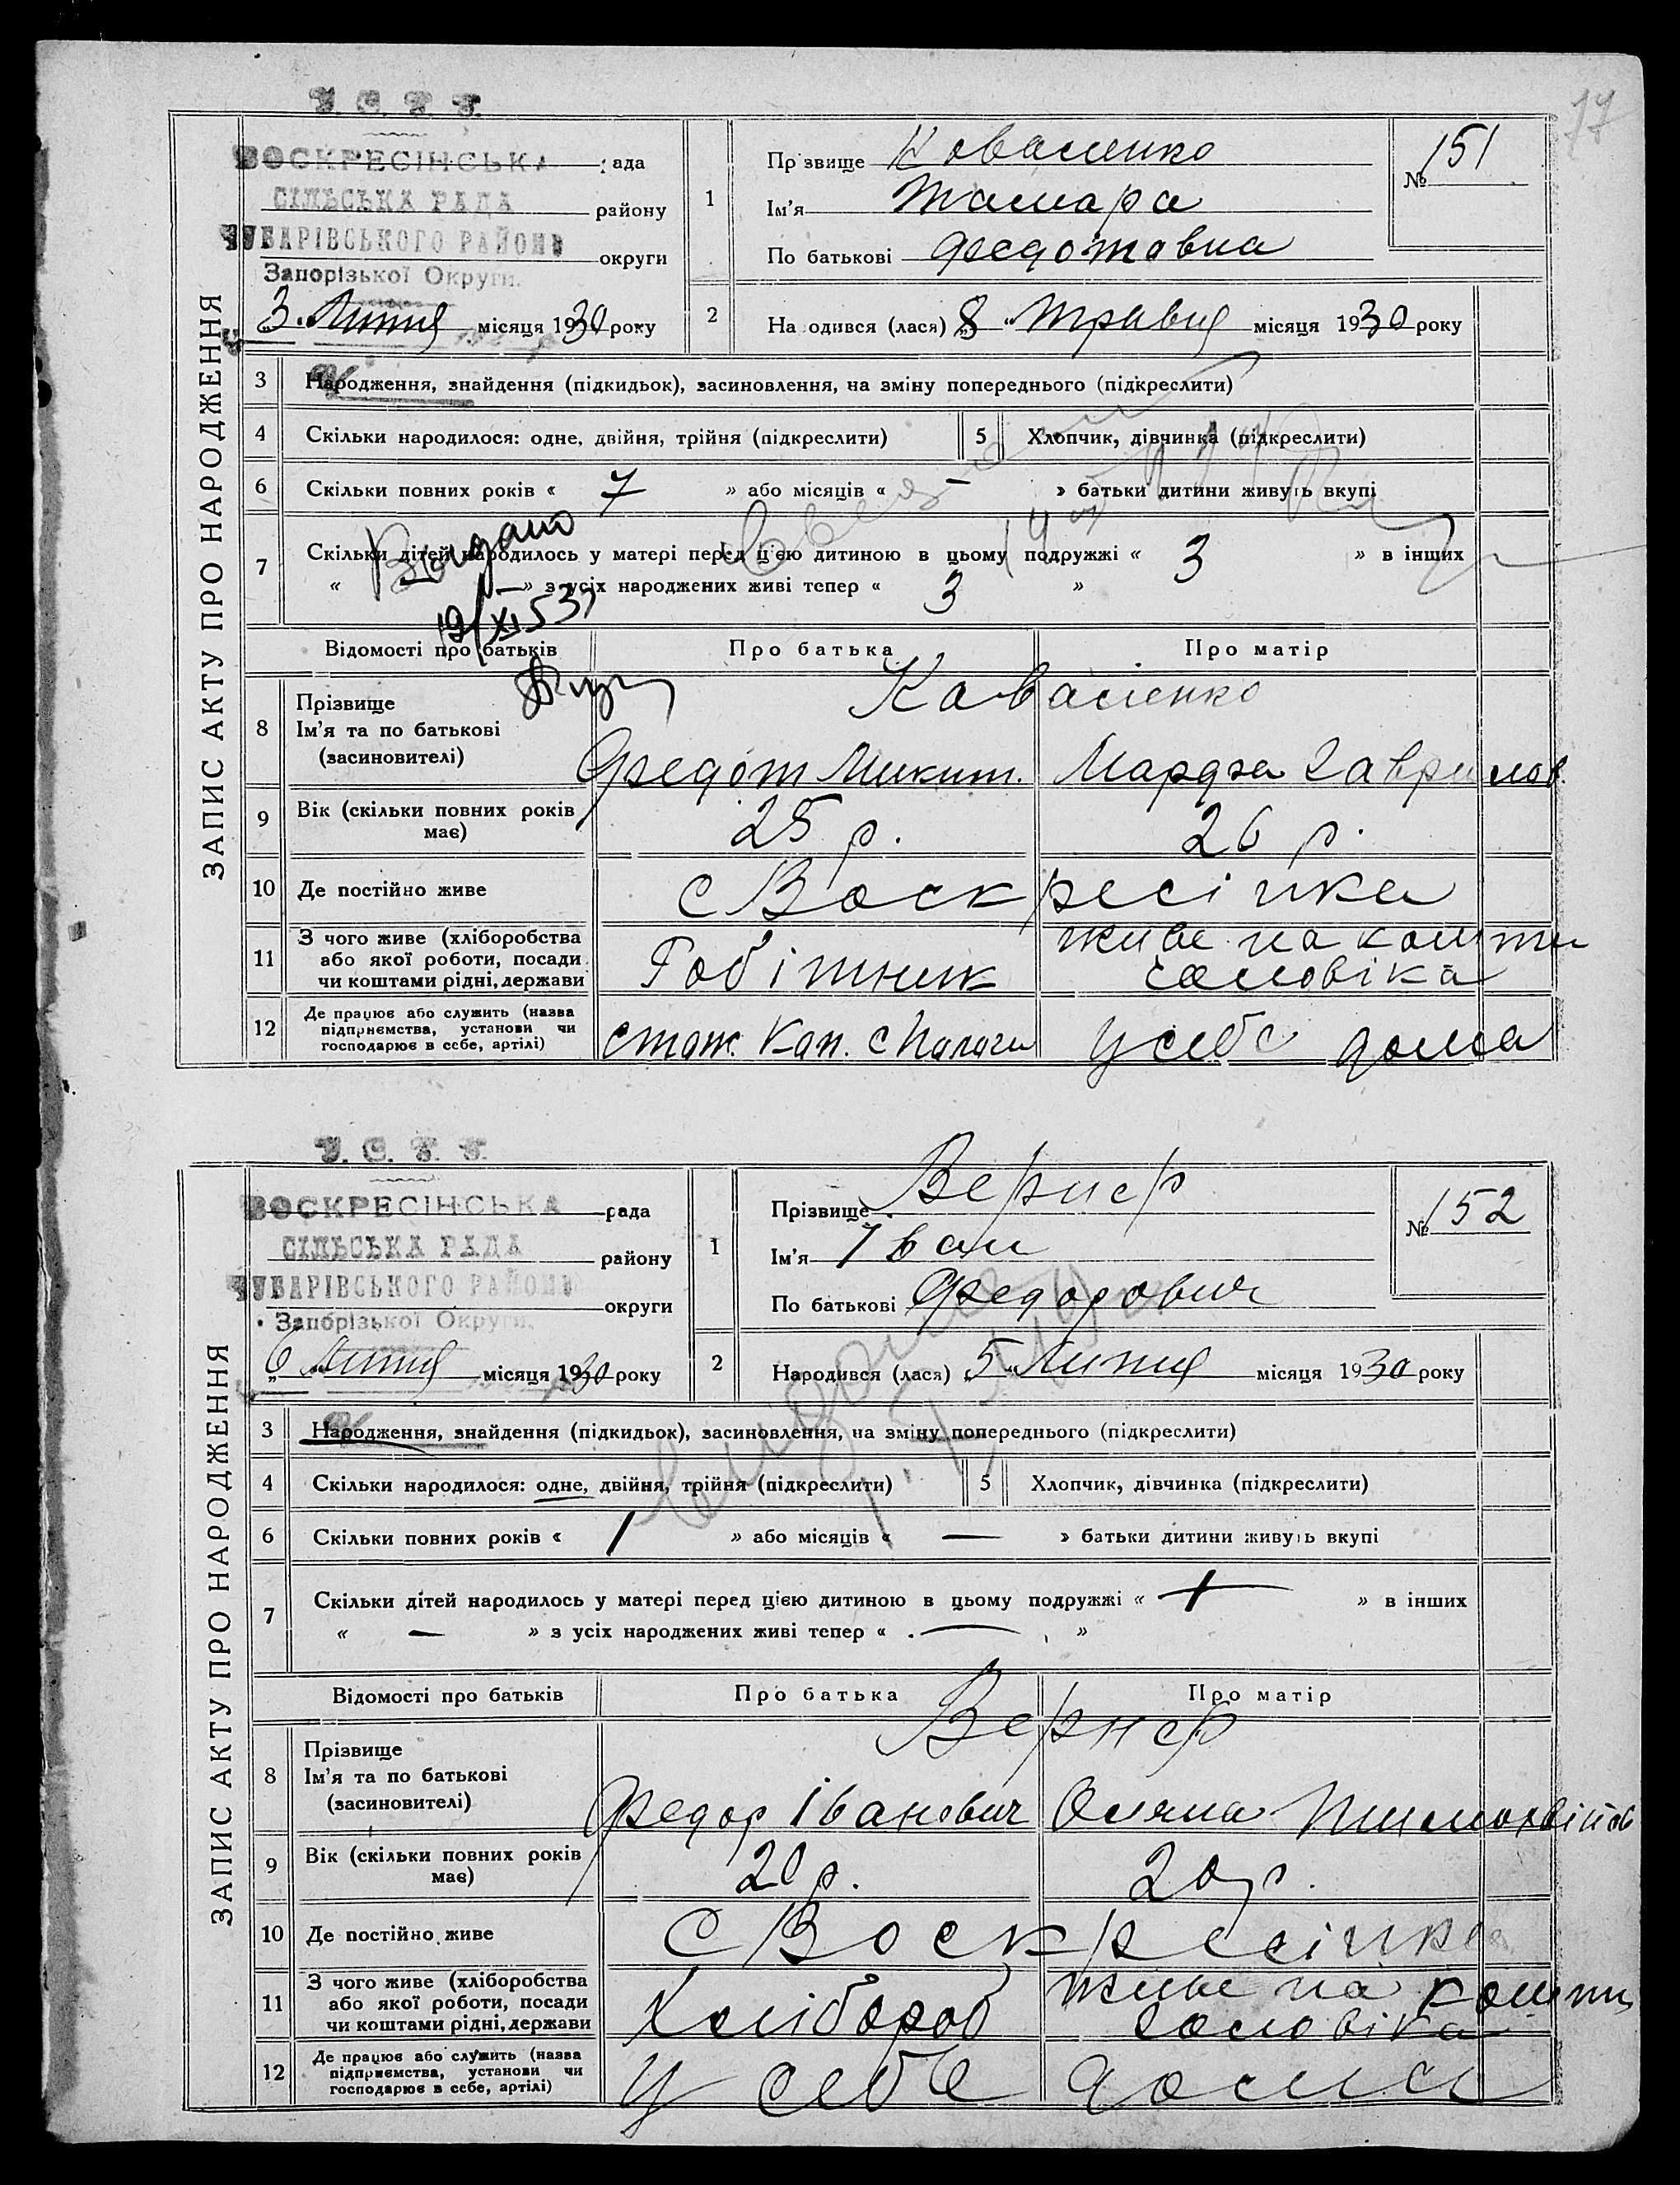 77
У. С. Р. Р.
ВОСКРЕСІНСЬКА рада
СІЛЬСЬКА РАДА району
ЧУБАРІВСЬКОГО РАЙОНУ округи
Запорізької Округи.
„3„ Липня місяця 1930 року
ЗАПИС АКТУ ПРО НАРОДЖЕННЯ
1
Прізвище Коваленко
Ім'я Тамара
По батькові Федотовна
№ 151
2
На одився (лася) „8 “ Травня місяця 1930 року
3 Народження, знайдення (підкидьок), засиновлення, на зміну попереднього (підкреслити)
4 Скільки народилося: одне, двійня, трійня (підкреслити) 5 Хлопчик, дівчинка (підкреслити)
6 Скільки повних років « 7 » або місяців « – » батьки дитини живуть вкупі
7 Скільки дітей народилось у матері перед цією дитиною в цьому подружжі « 3 » в інших
« — » з усіх народжених живі тепер « 3 »
Видано
19/XI 53
Відомості про батьків Про батька Про матір
8 Прізвище
Ім'я та по батькові
(засиновителі)
Коваленко
Федот Микит. Марфа Гаврилов.
9 Вік (скільки повних років
має)
25 р. 26 р.
10 Де постійно живе с Воскресінка
11 З чого живе (хліборобства
або якої роботи, посади
чи коштами рідні, держави
Робітник живе на кошти
чоловіка
12 Де працює або служить (назва
підприємства, установи чи
господарює в себе, артілі)
с Пологи у себе дома
У. С. Р. Р.
ВОСКРЕСІНСЬКА рада
СІЛЬСЬКА РАДА району
ЧУБАРІВСЬКОГО РАЙОНУ округи
Запорізької Округи.
„6„ Липня місяця 1930 року
ЗАПИС АКТУ ПРО НАРОДЖЕННЯ
1
Прізвище Вернер
Ім'я Іван
По батькові Федорович
№ 152
2
Народився (лася) „5 “ Липня місяця 1930 року
3 Народження, знайдення (підкидьок), засиновлення, на зміну попереднього (підкреслити)
4 Скільки народилося: одне, двійня, трійня (підкреслити) 5 Хлопчик, дівчинка (підкреслити)
6 Скільки повних років « 1 » або місяців « — » батьки дитини живуть вкупі
7 Скільки дітей народилось у матері перед цією дитиною в цьому подружжі « » в інших
« — » з усіх народжених живі тепер « — »
видано
Відомості про батьків Про батька Про матір
8 Прізвище
Ім'я та по батькові
(засиновителі)
Вернер
Федор Іванович Оляна Тимохвіїв
9 Вік (скільки повних років
має)
20 р. 20 р.
10 Де постійно живе с Воскресінка
11 З чого живе (хліборобства
або якої роботи, посади
чи коштами рідні, держави
Хлібороб живе на кошти
чоловіка
12 Де працює або служить (назва
підприємства, установи чи
господарює в себе, артілі)
у себе дома